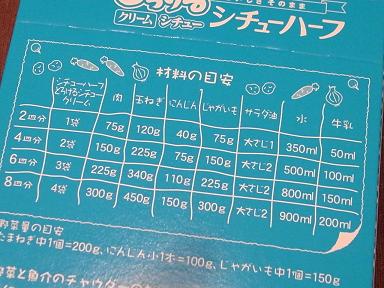 そのまま
クリーム シチュー シチューハーフ
材料の目安
シチューハーフ
とろけるシチュー
クリーム
肉 玉ねぎ にんじん じゃがいも サラダ油 水 牛乳
2皿分 1袋 75g 120g 40g 75g 大さじ1 350ml 50ml
4皿分 2袋 150g 225g 75g 150g 大さじ2 500ml 100ml
6皿分 3袋 225g 340g 110g 225g 大さじ2 800ml 150ml
8皿分 4袋 300g 450g 150g 300g 大さじ2 900ml 200ml
野菜量の目安
たまねぎ中1個=200g、にんじん小1本=100g、じゃがいも中1個=150g
野菜と魚介のチャウダーの